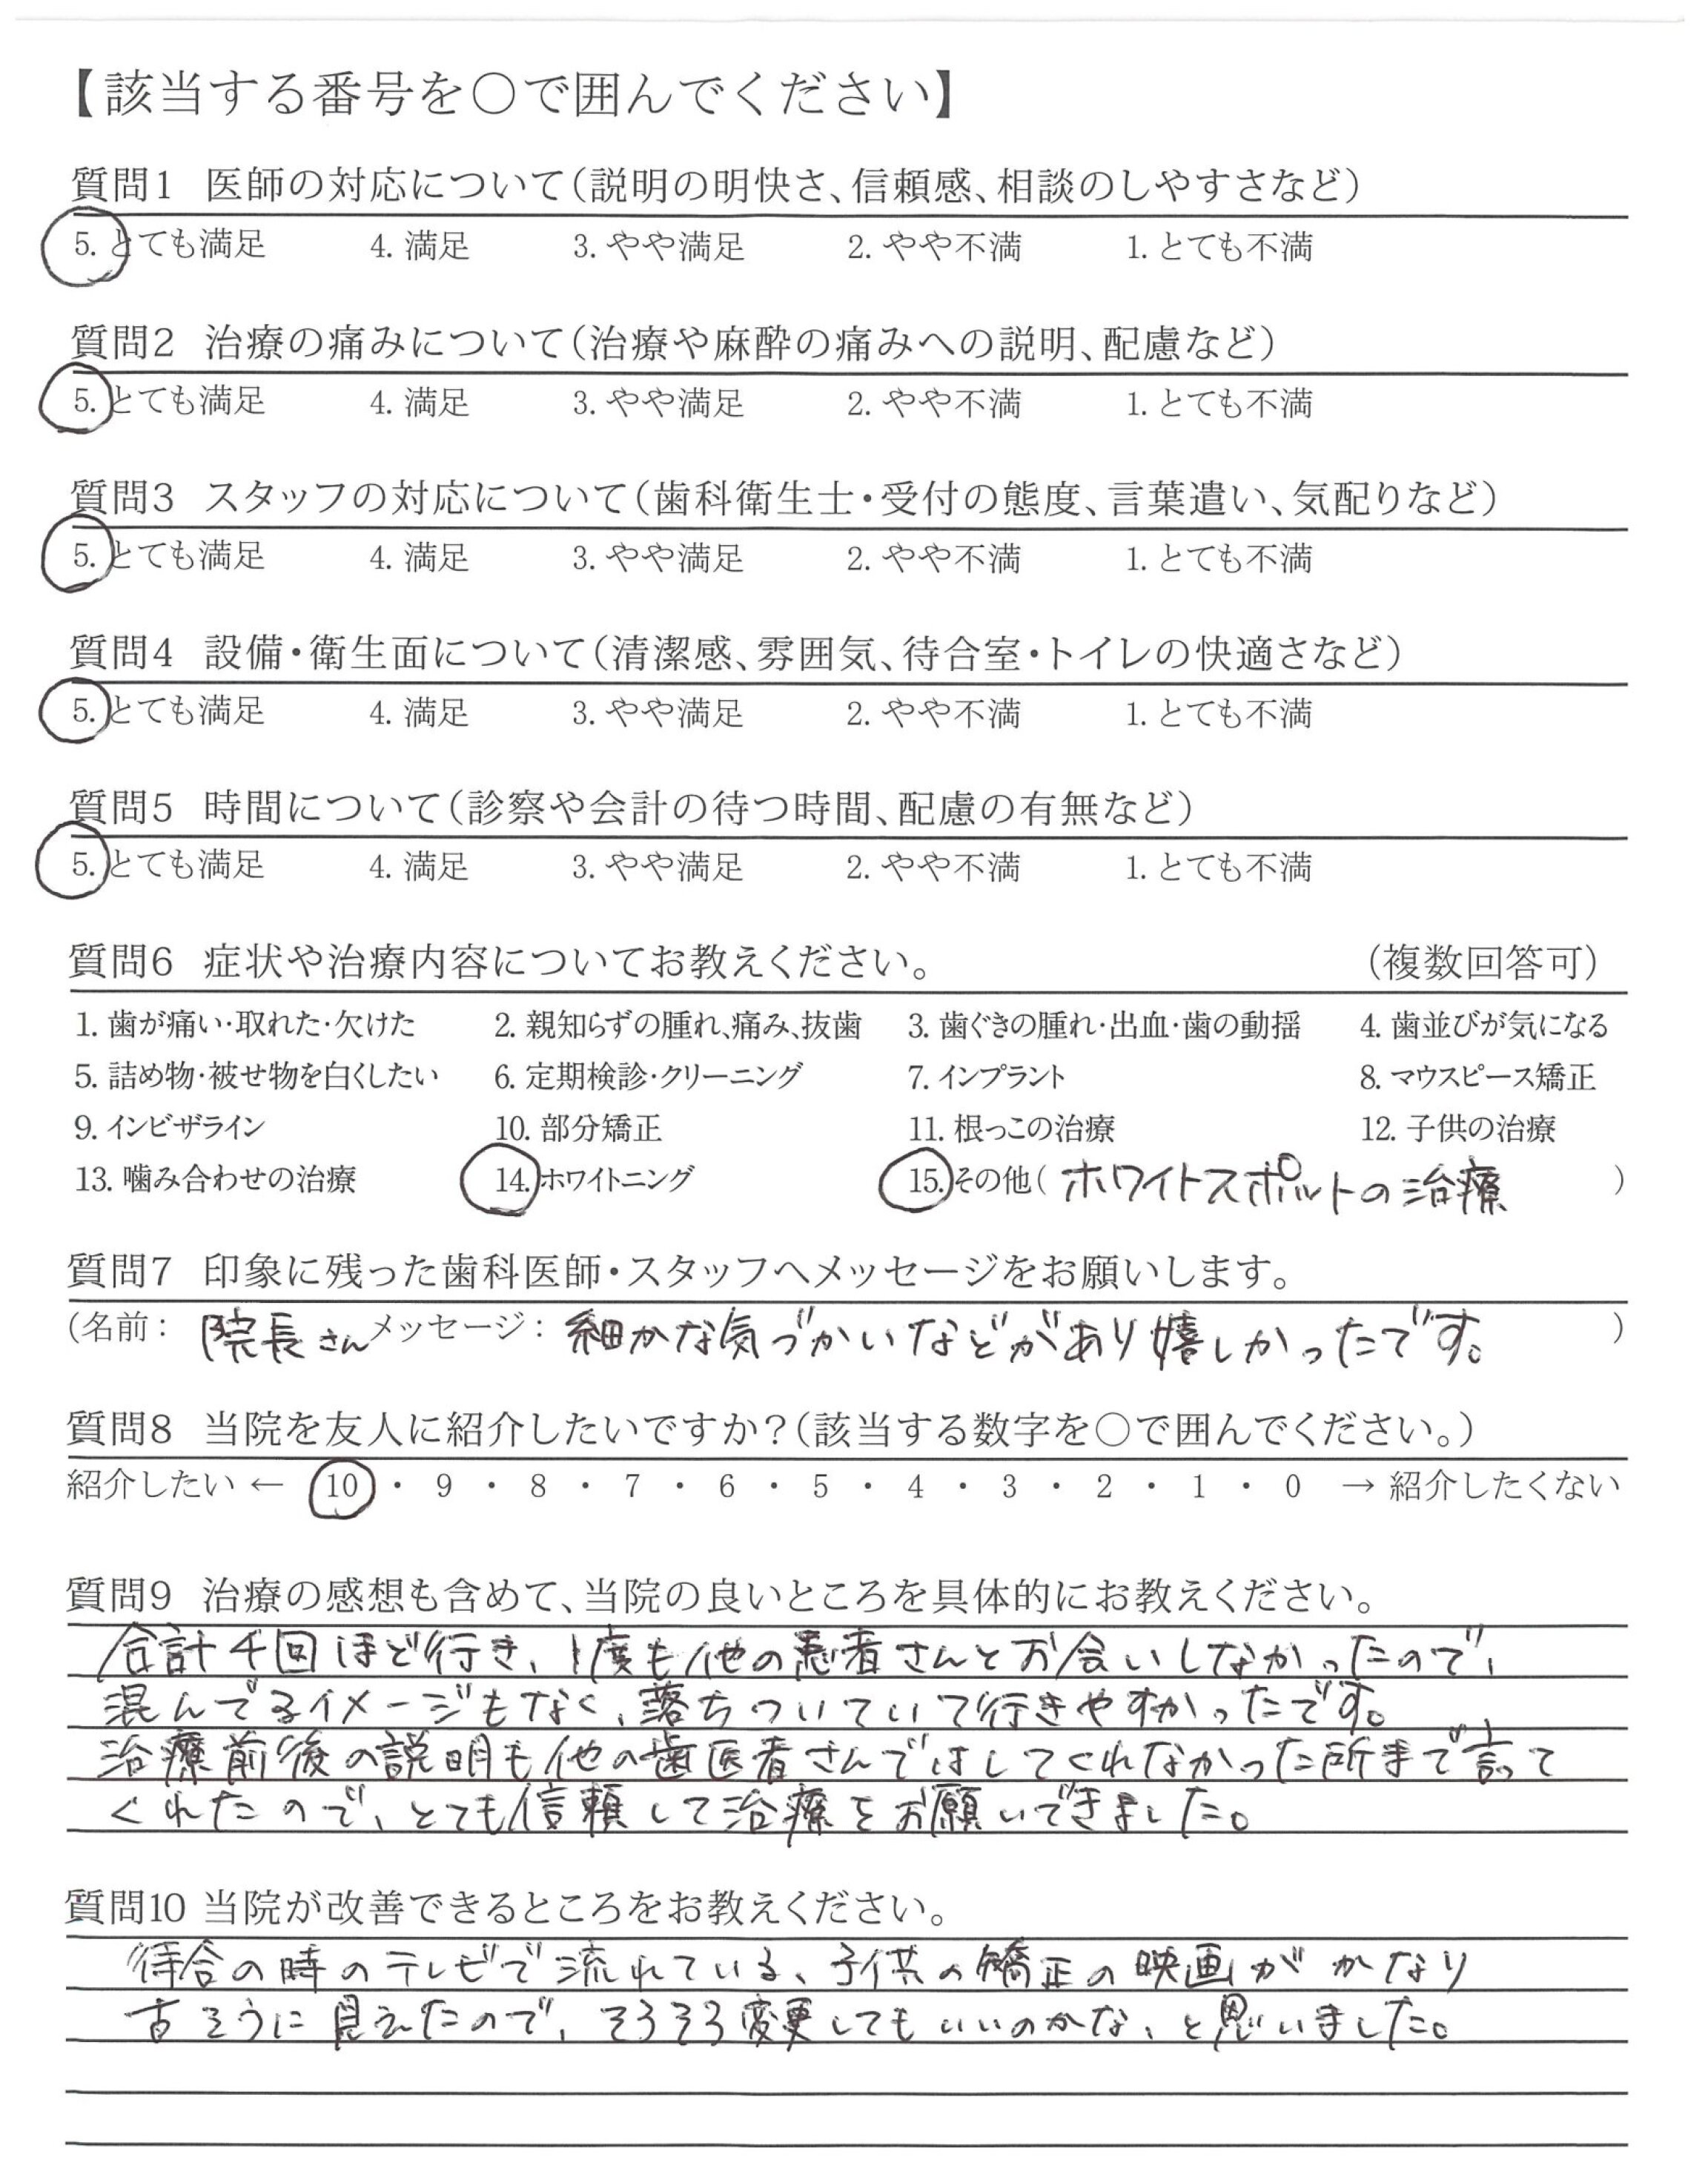 【該当する番号を○で囲んでください】
質問1 医師の対応について(説明の明快さ、信頼感、相談のしやすさなど)
5. とても満足 4. 満足 3. やや満足 2. やや不満 1. とても不満
質問2 治療の痛みについて(治療や麻酔の痛みへの説明、配慮など)
5. とても満足 4. 満足 3. やや満足 2. やや不満 1. とても不満
質問3 スタッフの対応について(歯科衛生士・受付の態度、言葉遣い、気配りなど)
5. とても満足 4. 満足 3. やや満足 2. やや不満 1. とても不満
質問4 設備・衛生面について(清潔感、雰囲気、待合室・トイレの快適さなど)
5. とても満足 4. 満足 3. やや満足 2. やや不満 1. とても不満
質問5 時間について(診察や会計の待つ時間、配慮の有無など)
5. とても満足 4. 満足 3. やや満足 2. やや不満 1. とても不満
質問6 症状や治療内容についてお教えください。 (複数回答可)
1. 歯が痛い・取れた・欠けた 2. 親知らずの腫れ、痛み、抜歯 3. 歯ぐきの腫れ・出血・歯の動揺 4. 歯並びが気になる
5. 詰め物・被せ物を白くしたい 6. 定期検診・クリーニング 7. インプラント 8. マウスピース矯正
9. インビザライン 10. 部分矯正 11. 根っこの治療 12. 子供の治療
13. 噛み合わせの治療 14. ホワイトニング 15. その他( ホワイトスポットの治療 )
質問7 印象に残った歯科医師・スタッフへメッセージをお願いします。
(名前: 院長さん メッセージ: 細かな気づかいなどがあり嬉しかったです。 )
質問8 当院を友人に紹介したいですか?(該当する数字を○で囲んでください。)
紹介したい ← 10 ・ 9 ・ 8 ・ 7 ・ 6 ・ 5 ・ 4 ・ 3 ・ 2 ・ 1 ・ 0 → 紹介したくない
質問9 治療の感想も含めて、当院の良いところを具体的にお教えください。
合計4回ほど行き、1度も他の患者さんとお会いしなかったので、
混んでるイメージもなく、落ちついていて行きやすかったです。
治療前後の説明も他の歯医者さんではしてくれなかった所まで言って
くれたので、とても信頼して治療をお願いできました。
質問10 当院が改善できるところをお教えください。
待合の時のテレビで流れている、子供の矯正の映画がかなり
古そうに見えたので、そろそろ変更してもいいのかな、と思いました。